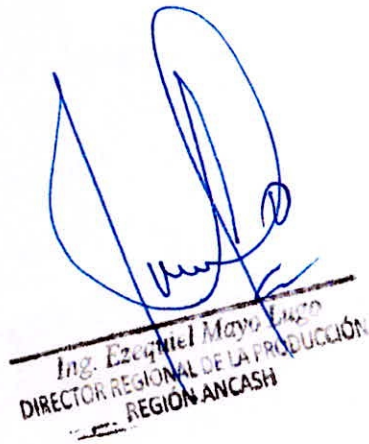 Ing. Ezequiel Mayo Lugo
DIRECTOR REGIONAL DE LA PRODUCCIÓN
REGIÓN ANCASH